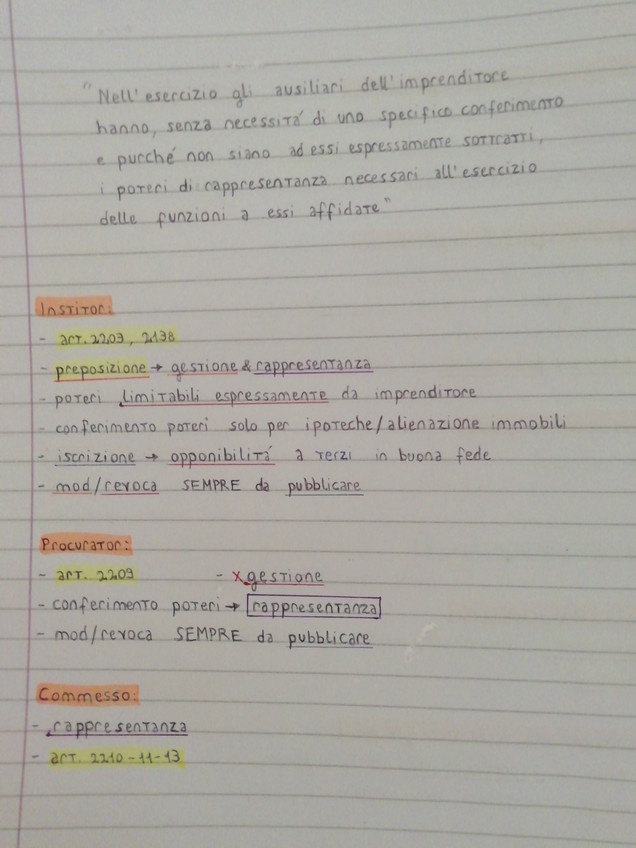 "Nell'esercizio gli ausiliari dell'imprenditore
hanno, senza necessità di uno specifico conferimento
e purché non siano ad essi espressamente sottratti,
i poteri di rappresentanza necessari all'esercizio
delle funzioni a essi affidate"
Institor:
- art. 2203, 2138
- preposizione → gestione & rappresentanza
- poteri limitabili espressamente da imprenditore
- conferimento poteri solo per ipoteche/alienazione immobili
- iscrizione → opponibilità a terzi in buona fede
- mod/revoca SEMPRE da pubblicare
Procurator:
- art. 2209 - x gestione
- conferimento poteri → rappresentanza
- mod/revoca SEMPRE da pubblicare
Commesso:
- rappresentanza
- art. 2210-11-13